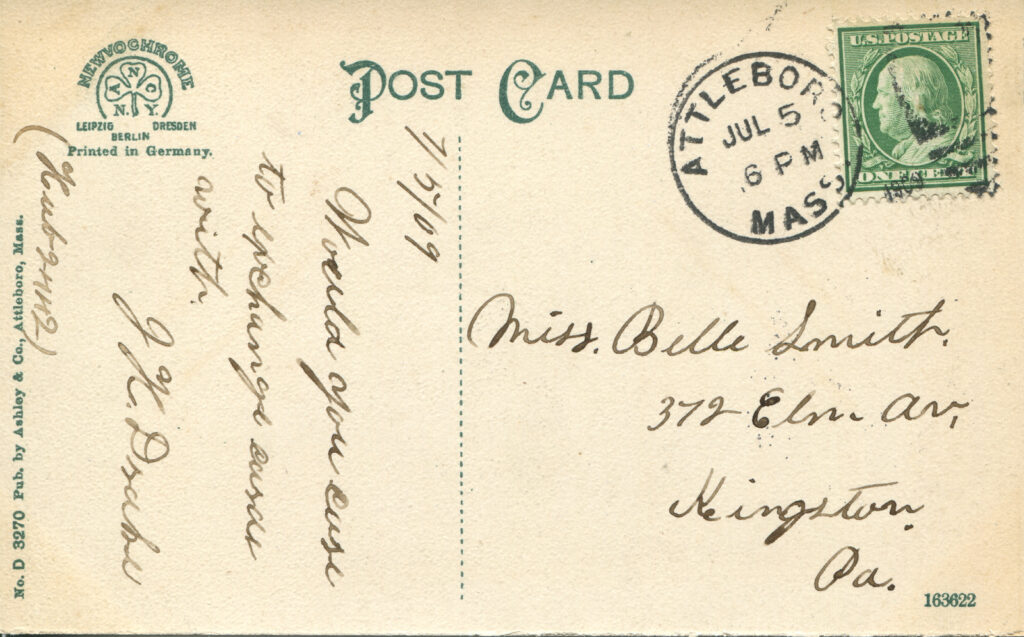 NEWVOCHROME
A N C O N.Y.
LEIPZIG DRESDEN
BERLIN
Printed in Germany.
POST CARD
ATTLEBORO
JUL 5
6 PM
MASS.
1909
U.S. POSTAGE
ONE CENT
7/5/09
Would you care
to exchange cards
with
J K. Drake
Miss. Belle Smith.
372 Elm. Av,
Kingston,
Pa.
No. D 3270 Pub. by Ashley & Co., Attleboro, Mass.
163622